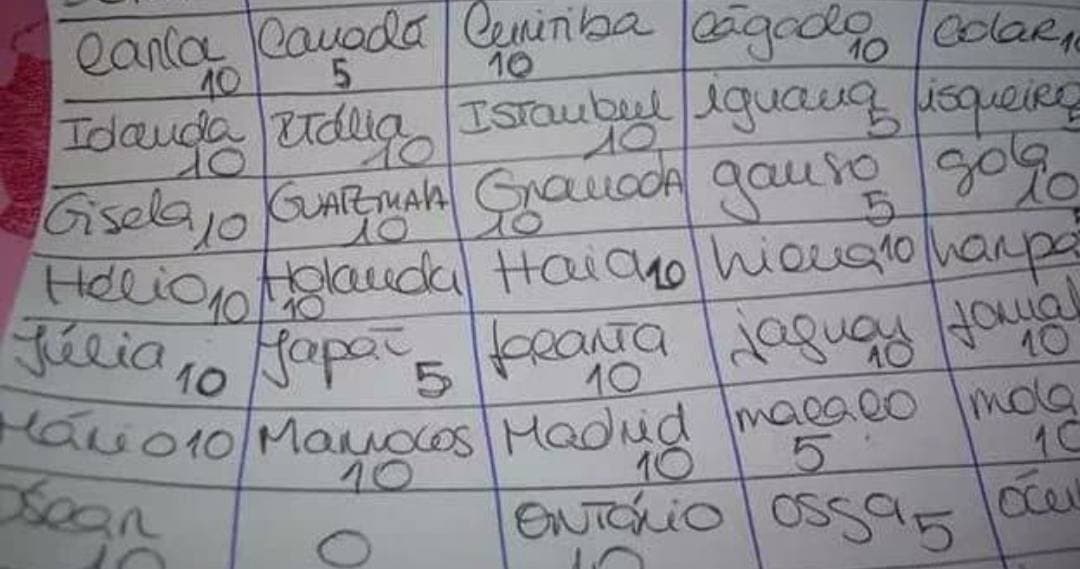 Carla 10 Canadá 5 Curitiba 10 cágado 10 colar 10
Iolanda 10 Itália 10 Istanbul 10 iguana 5 isqueiro 5
Gisela 10 GUATEMALA 10 Granada 10 ganso 5 gola 10
Hélio 10 Holanda 10 Haia 10 hiena 10 harpa
Júlia 10 Japão 5 Jacarta 10 jaguar 10 jornal 10
Mário 10 Marrocos 10 Madrid 10 macaco 5 mola 10
Óscar 10 0 Ontário 10 ossga 5